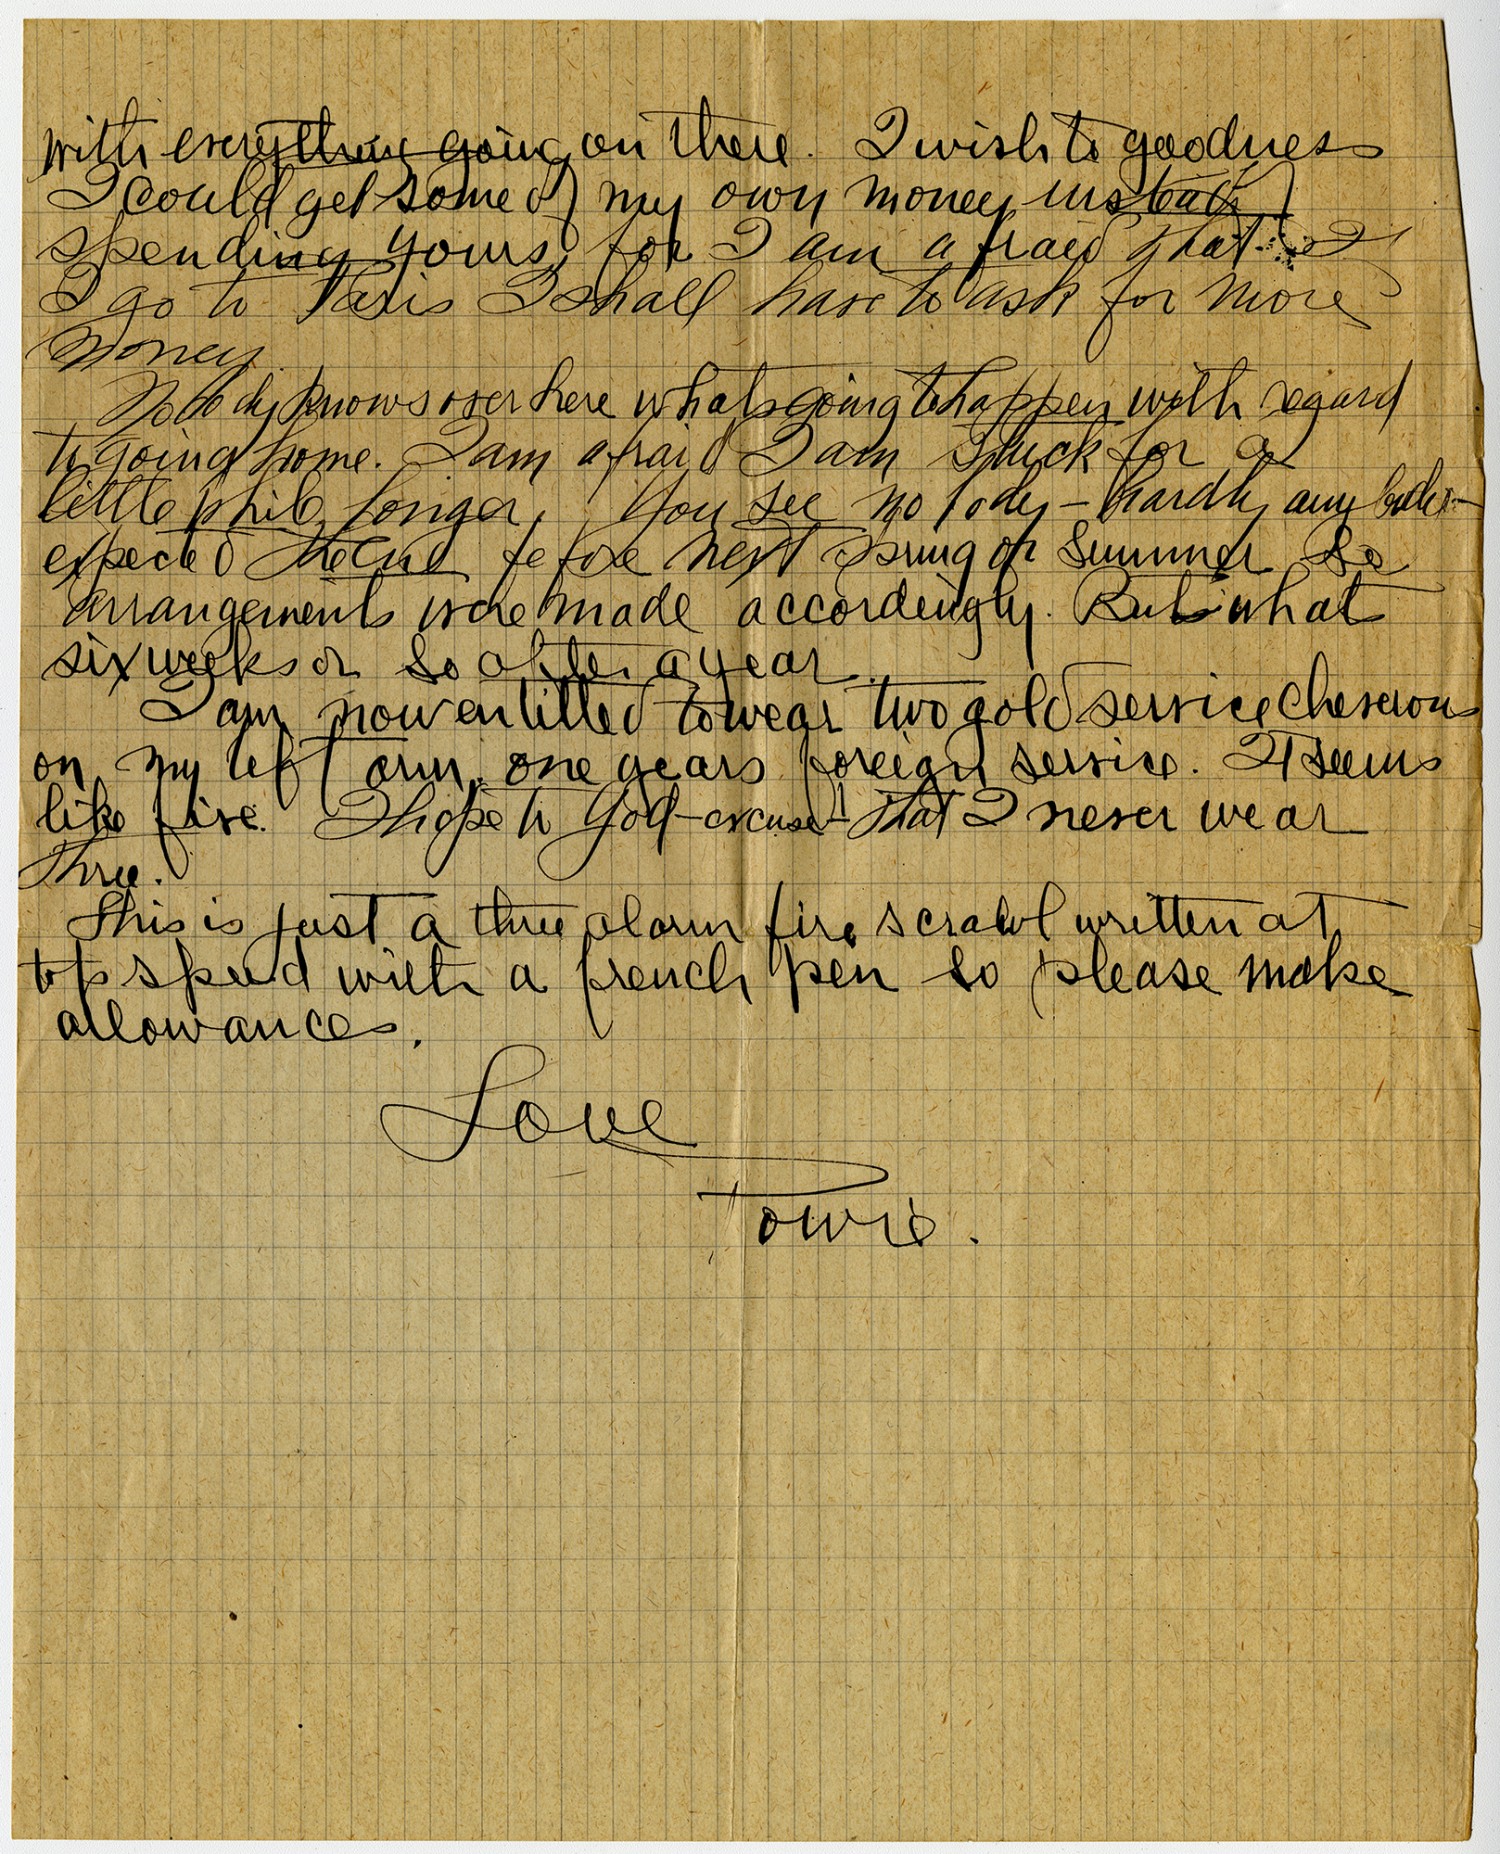 with everything going on there. I wish to goodness
I could get some of my own money instead of
spending yours, for I am afraid that if
I go to Paris I shall have to ask for more
money.
Nobody knows over here whats going to happen with regard
to going home. I am afraid I am stuck for a
little while longer. You see nobody – hardly anybody –
expected the end before next spring or summer so
arrangements were made accordingly. But what
six weeks or so after a year.
I am now entitled to wear two gold service chevrons
on my left arm, one years foreign service. It seems
like five. I hope to God – excuse! that I never wear
three.
This is just a three alarm fire scrawl written at
top speed with a french pen so please make
allowances.
Love
Towrie.